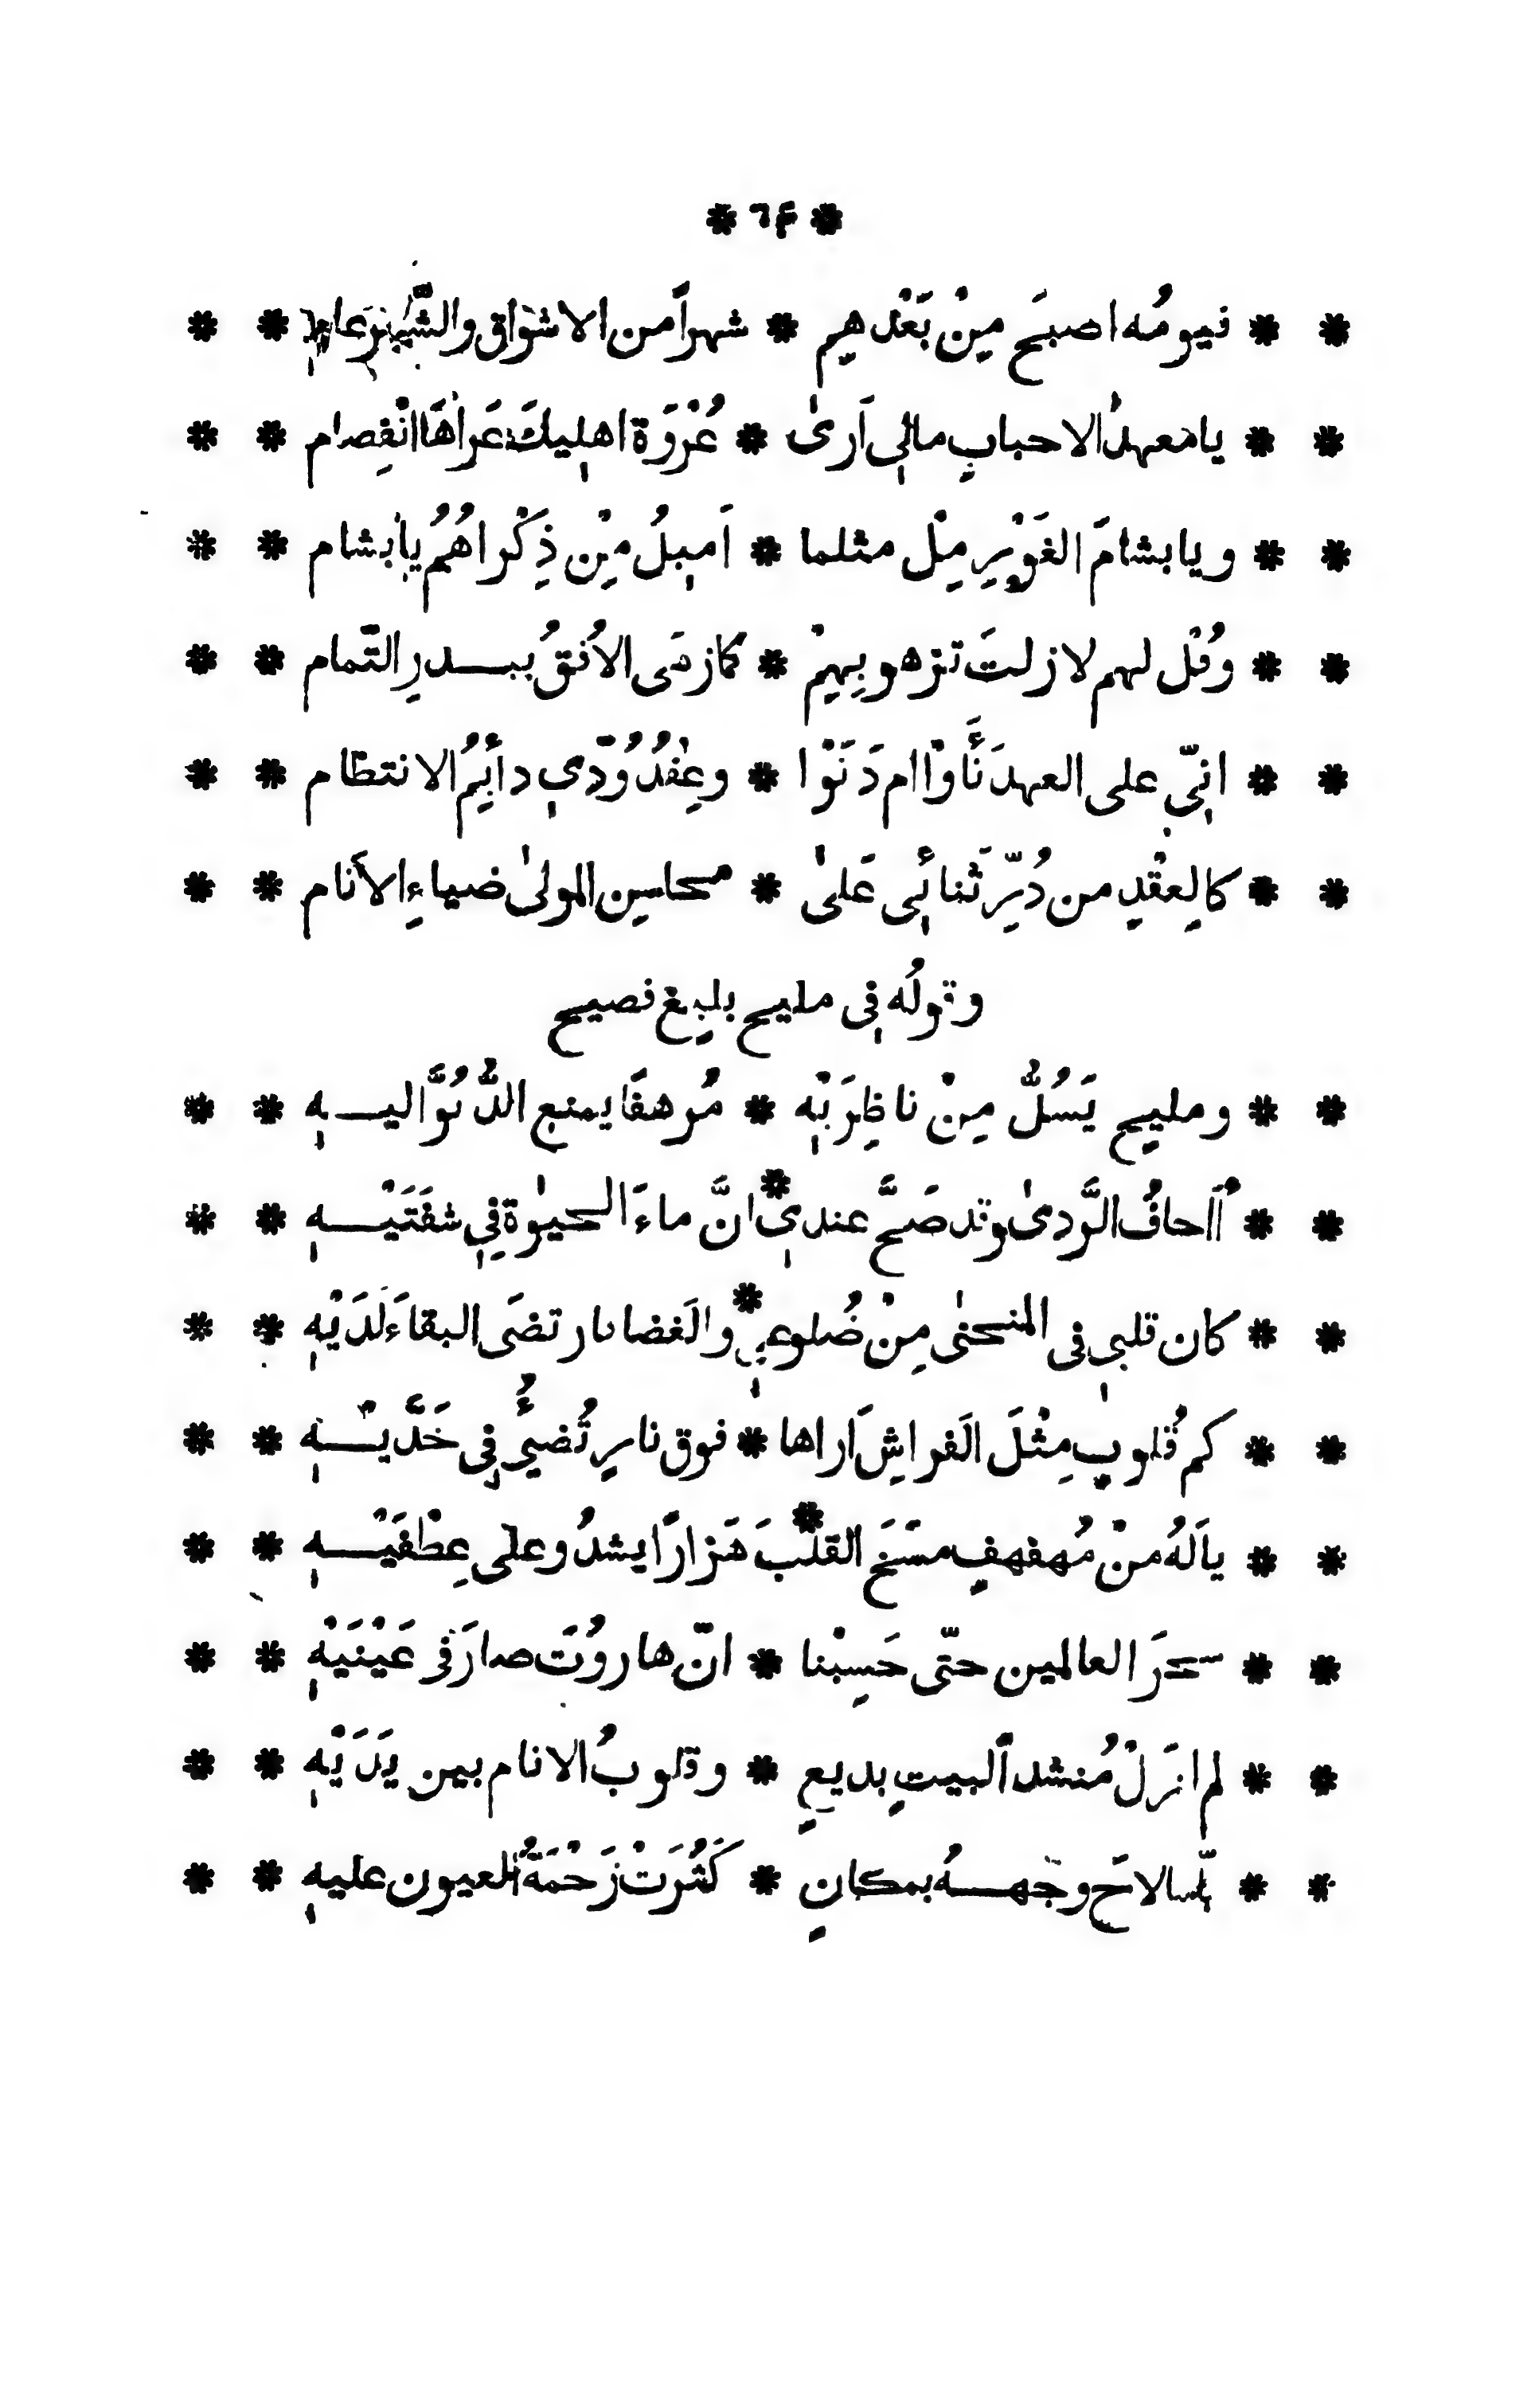 * ٦۴ *
* * فيومُه اصبحَ مِنْ بَعْدهِم * شهراً من الاشواقِ والشَّهرُ عام * *
* * يا مَعهدَ الاحبابِ مالي اَرىٰ * عُرْوَة اهلِيكَ عَراهَا انْفِصام * *
* * ويا بشامَ الغَوْيرِ مِلْ مثلما * اَميلُ مِنْ ذِكْراهُمُ يا بشام * *
* * وقُلْ لهم لا زلتَ تزهو بِهِمْ * كما زهَى الاُفقُ ببدرِ التَّمام * *
* * انِّي على العهدِ نَأَوْا ام دَنَوْا * وعِقْدُ وُدّي دأيِمُ الانتظام * *
* * كالعِقْدِ من دُرِّ ثَنائي عَلىٰ * محاسِن المولىٰ ضياءِ الاَنام * *
وقولُه في مليحٍ بليغ فصيح
* * ومليحٍ يَسُلُّ مِنْ ناظِرَيْهِ * مُرهفًا يمنع الدُّنُوَّ اليهِ * *
* * أاَخافُ الرَّدىٰ وقد صَحَّ عندي * انَّ ماءَ الحيوٰة فِي شفَتَيْهِ * *
* * كان قلبي في المنحنىٰ مِنْ ضُلوعي * والَغضا نار تضَى البقاءَ لَدَيْهِ * *
* * كم قُلوبٍ مِثْلَ الَفراشِ اَراها * فوق نارٍ تُضئُ فِي خَدَّيْهِ * *
* * يا لَهُ منْ مُهفهفٍ مسَخَ القلْبَ * هَزارًا يشدُو على عِطْفَيْهِ * *
* * سحَرَ العالمين حتّى حَسِبْنا * انّ هاروُتَ صارَ في عَيْنَيْهِ * *
* * لم ازَلْ مُنشداً لبيتٍ بديعٍ * وقلوبُ الانام بين يَدَيْهِ * *
* * لمّا لاحَ وجهُهُ بمكانٍ * كَثُرَتْ زَحْمَةُ العيون عليهِ * *